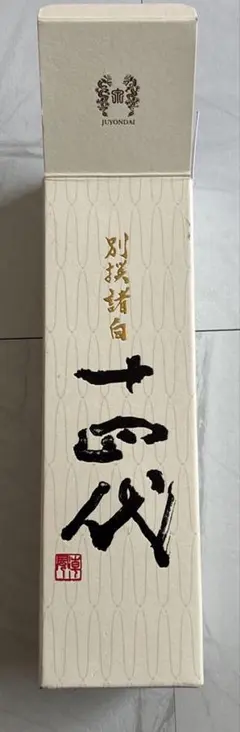 JUYONDAI
別撰諸白
十四代